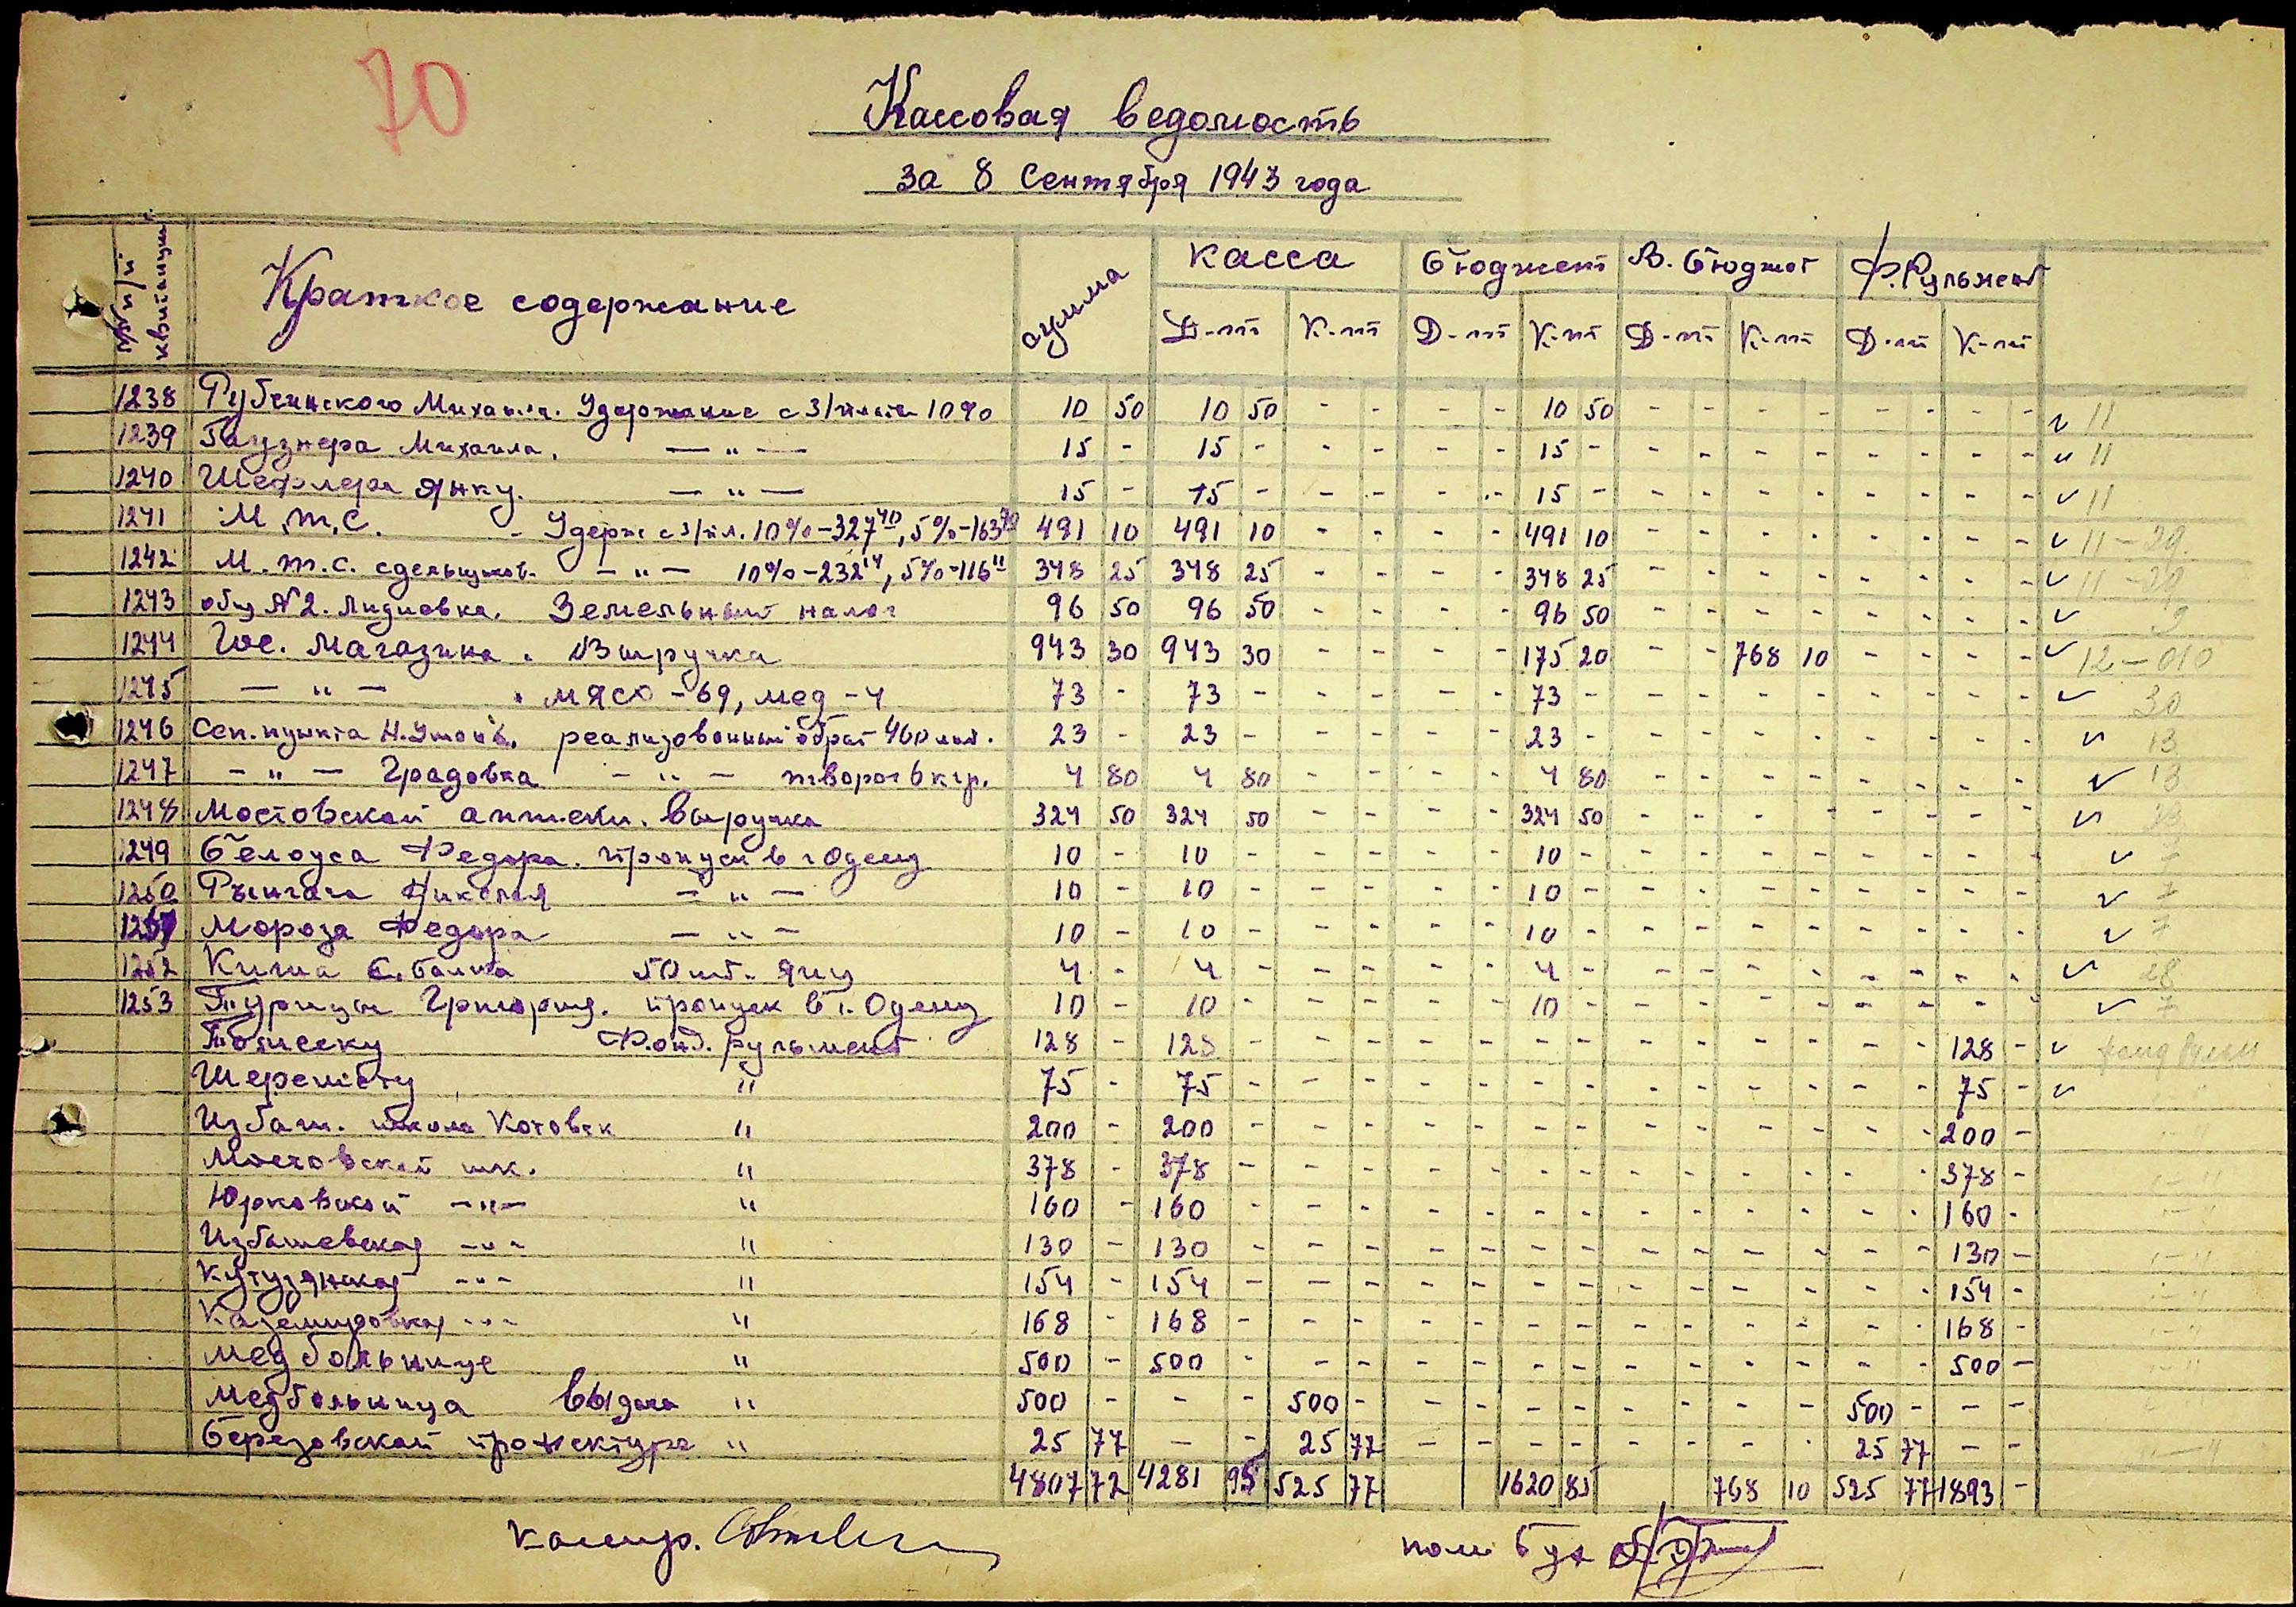 70
Кассовая ведомость
за 8 Сентября 1943 года
№ п/п квитанции Краткое содержание сумма касса бюджет В. бюджет Ф. Рульмент
Д-т К-т Д-т К-т Д-т К-т Д-т К-т
1238 Михаила. Удержание с з/платы 10% 10 50 10 50 - - - - 10 50 - - - - - - - - ✓ 11
1239 Михаила. — " — 15 - 15 - - - - - 15 - - - - - - - - - ✓ 11
1240 Янку. — " — 15 - 15 - - - - - 15 - - - - - - - - - ✓ 11
1241 М.т.С. - Удерж с з/пл. 10% - 327 40, 5% - 163 70 491 10 491 10 - - - - 491 10 - - - - - - - - ✓ 11 - 29
1242 М.т.с. сдельщиков. — " — 10% - 232 14, 5% - 116 11 348 25 348 25 - - - - 348 25 - - - - - - - - ✓ 11 - 29
1243 общ № 2. Лидиевка. Земельный налог 96 50 96 50 - - - - 96 50 - - - - - - - - ✓ 2
1244 Гос. Магазина. Выручка 943 30 943 30 - - - - 175 20 - - 768 10 - - - - ✓ 12 - 010
1245 — " — . мясо - 69, мед - 4 73 - 73 - - - - - 73 - - - - - - - - - ✓ 30
1246 Сеп. пункта реализованный обрат 460 23 - 23 - - - - - 23 - - - - - - - - - ✓ 13
1247 — " — Градовка — " — творог 6 кгр. 4 80 4 80 - - - - 4 80 - - - - - - - - ✓ 13
1248 Мостовской аптеки. Выручка 324 50 324 50 - - - - 324 50 - - - - - - - - ✓
1249 Белоуса Федора. пропуск в г Одессу 10 - 10 - - - - - 10 - - - - - - - - - ✓ 7
1250 Николая — " — 10 - 10 - - - - - 10 - - - - - - - - - ✓ 7
1251 Мороза Федора — " — 10 - 10 - - - - - 10 - - - - - - - - - ✓ 7
1252 50 шт. яиц 4 - 4 - - - - - 4 - - - - - - - - - ✓ 28
1253 Григория. пропуск в г. Одессу 10 - 10 - - - - - 10 - - - - - - - - - ✓ 7
Фонд. рульмент 128 - 128 - - - - - - - - - - - - - 128 - ✓ фонд
" 75 - 75 - - - - - - - - - - - - - 75 - ✓
Избаш. школа Котовск " 200 - 200 - - - - - - - - - - - - - 200 -
Мостовской шк. " 378 - 378 - - - - - - - - - - - - - 378 -
Юрковской — " — " 160 - 160 - - - - - - - - - - - - - 160 -
Избашевская — " — " 130 - 130 - - - - - - - - - - - - - 130 -
Кутузянская — " — " 154 - 154 - - - - - - - - - - - - - 154 -
— " — " 168 - 168 - - - - - - - - - - - - - 168 -
Медбольнице " 500 - 500 - - - - - - - - - - - - - 500 -
Медбольница выдача " 500 - - - 500 - - - - - - - - - 500 - - -
Березовской " 25 77 - - 25 77 - - - - - - - - 25 77 - -
4807 72 4281 95 525 77 1620 85 768 10 525 77 1893 -
кассир.
пом Бух